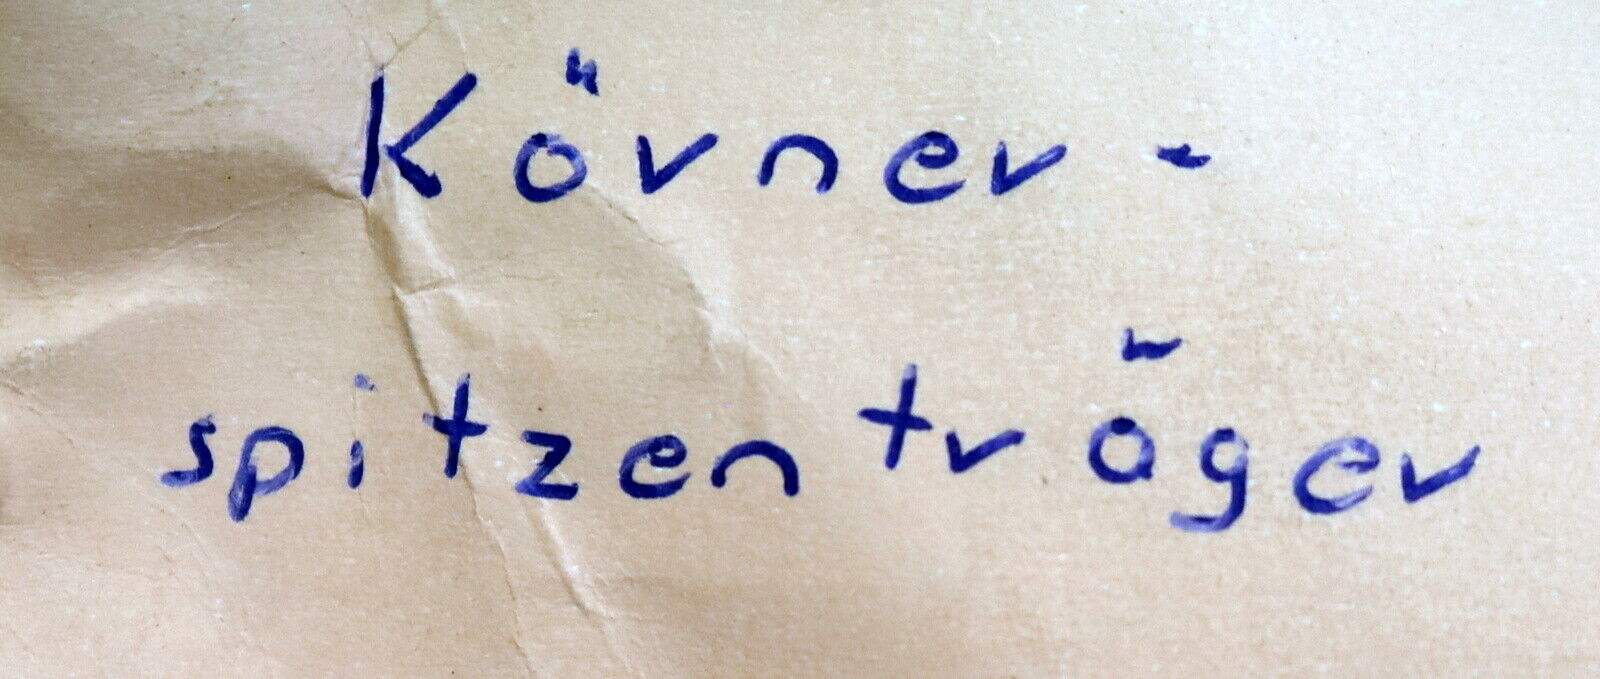 Körner-
spitzenträger